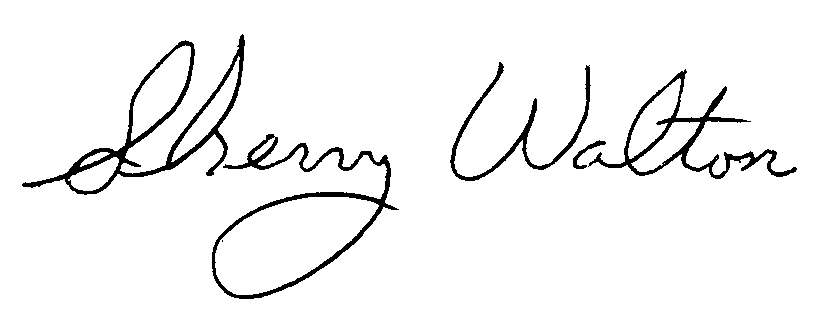 Sherry Walton